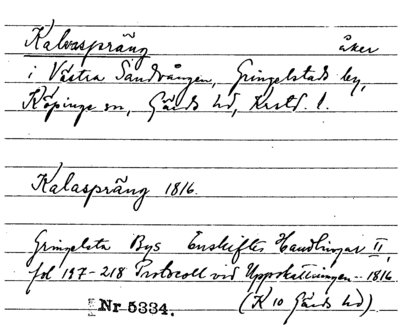 Kalvaspräng åker
i Västra Sandvången, Gringelstads by,
Köpinge sn, Gärds hd, Krstd. l.
Kalaspräng 1816.
Gringelsta Bys Enskiftes Handlingar II,
fol 197-218 Protocoll vid Uppskattningen - 1816
Nr 5334. (K 10 Gärds hd)